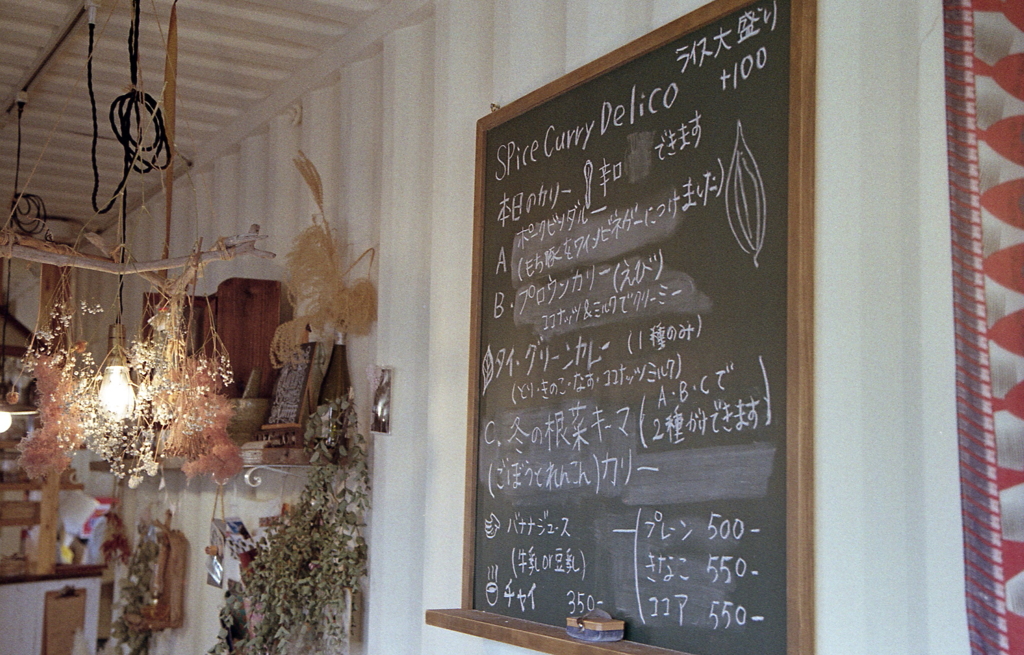 ライス大盛り
+100
Spice Curry Delico
本日のカリー 辛口 できます
A ポークビンダルー
(もち豚をワインビネガーにつけました)
B. ブロウンカリー(えび)
ココナッツ&ミルクでクリーミー
タイ・グリーンカレー (1種のみ)
(とり・きのこ・なす・ココナッツミルク)
C. 冬の根菜キーマ
(ごぼうとれんこん)カリー
(A・B・Cで
2種がけできます)
バナナジュース
(牛乳or豆乳)
プレーン 500-
きなこ 550-
ココア 550-
チャイ 350-